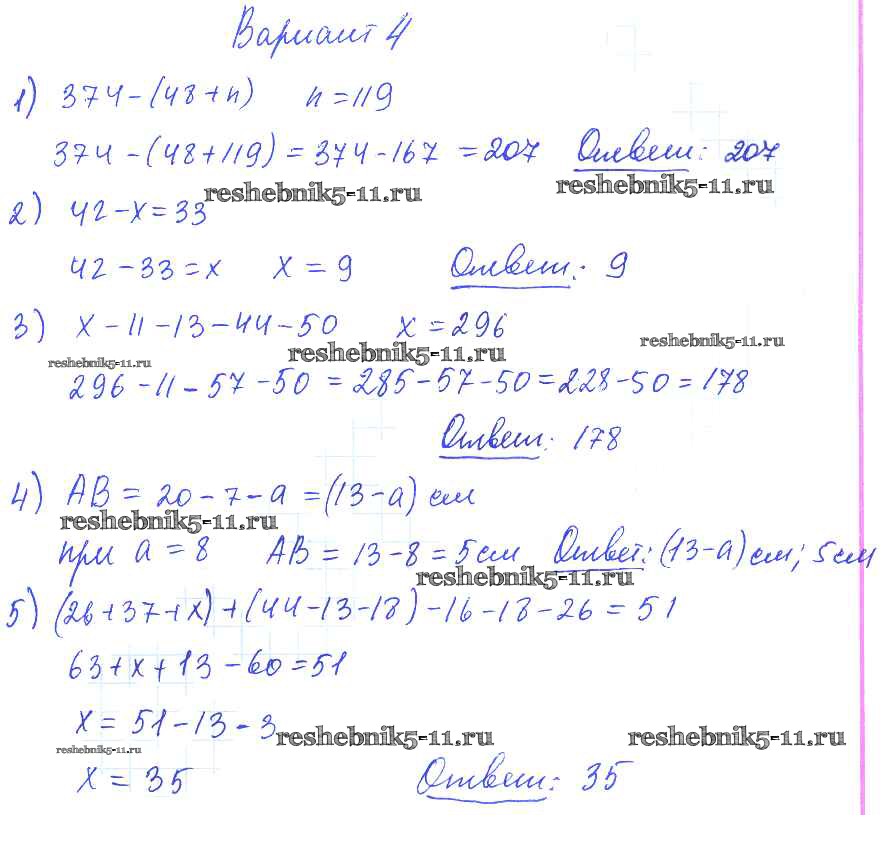 Вариант 4
1) 374-(48+n) n=119
374-(48+119)=374-167=207 Ответ: 207
reshebnik5-11.ru reshebnik5-11.ru
2) 42-x=33
42-33=x x=9 Ответ: 9
3) x-11-13-44-50 x=296
reshebnik5-11.ru reshebnik5-11.ru reshebnik5-11.ru
296-11-57-50=285-57-50=228-50=178
Ответ: 178
4) AB=20-7-a=(13-a) см
reshebnik5-11.ru
при a=8 AB=13-8=5см Ответ: (13-a)см; 5см
reshebnik5-11.ru
5) (26+37+x)+(44-13-18)-16-18-26=51
63+x+13-60=51
x=51-13-3
reshebnik5-11.ru reshebnik5-11.ru reshebnik5-11.ru
x=35 Ответ: 35